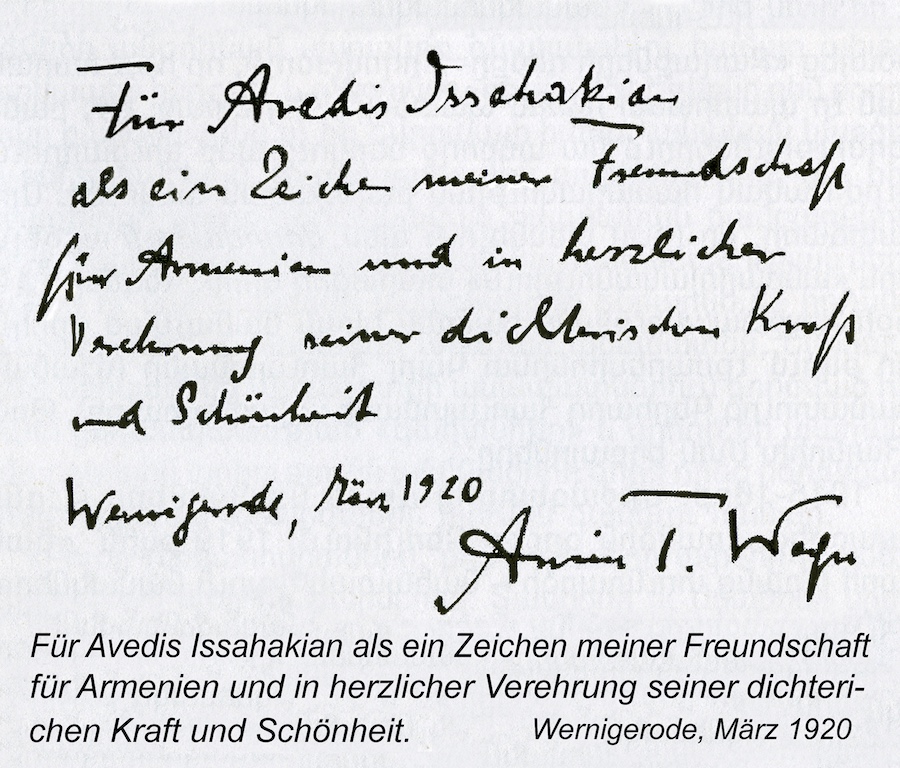 Für Avedis Issahakian
als ein Zeichen meiner Freundschaft
für Armenien und in herzlicher
Verehrung seiner dichterischen Kraft
und Schönheit
Wernigerode, März 1920
Armin T. Wegner
Für Avedis Issahakian als ein Zeichen meiner Freundschaft
für Armenien und in herzlicher Verehrung seiner dichteri-
chen Kraft und Schönheit. Wernigerode, März 1920